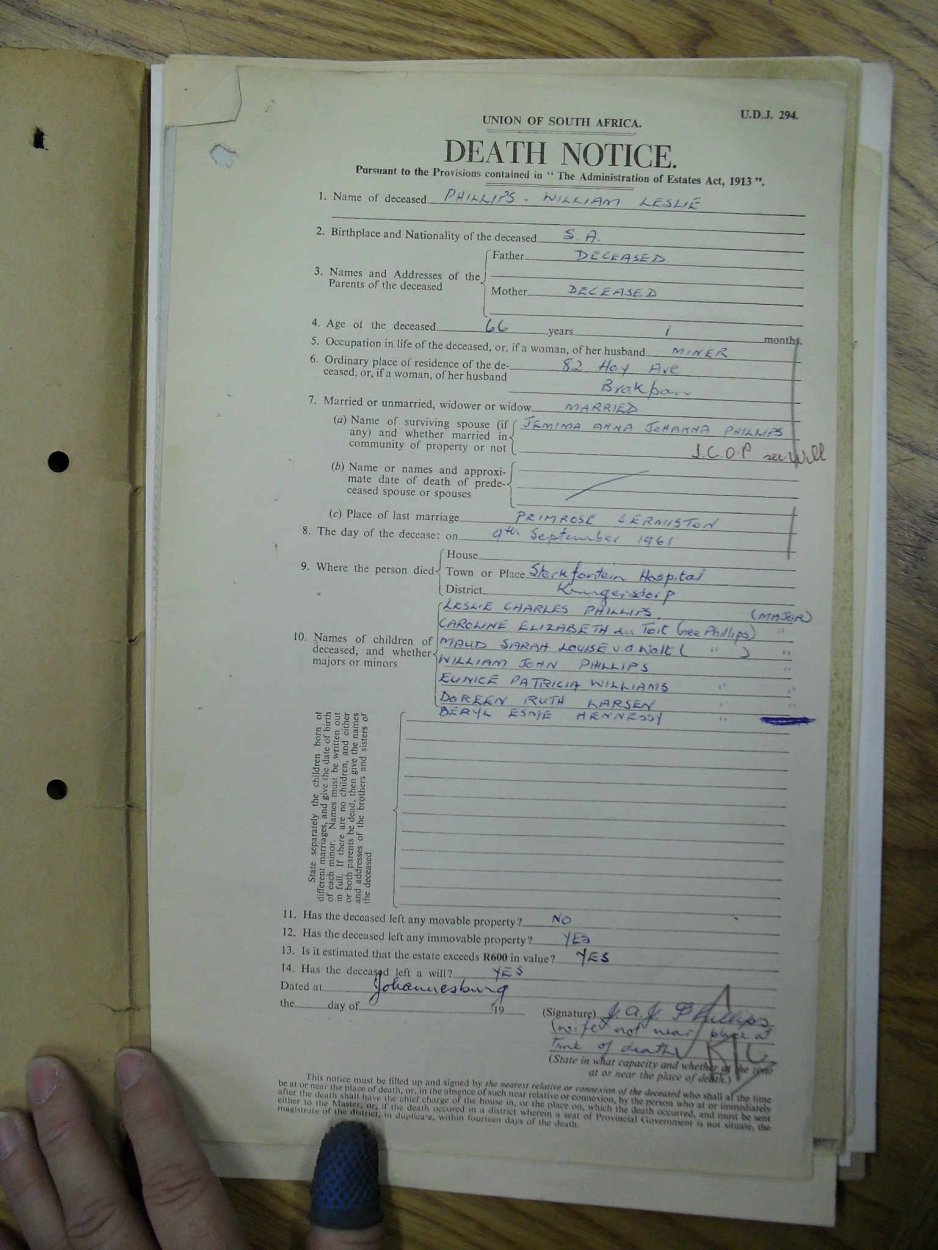 U.D.J. 294.
UNION OF SOUTH AFRICA.
DEATH NOTICE.
Pursuant to the Provisions contained in "The Administration of Estates Act, 1913".
1. Name of deceased PHILLIPS. WILLIAM LESLIE
2. Birthplace and Nationality of the deceased S.A.
3. Names and Addresses of the Parents of the deceased
Father DECEASED
Mother DECEASED
4. Age of the deceased 66 years 1 months.
5. Occupation in life of the deceased, or, if a woman, of her husband MINER
6. Ordinary place of residence of the de-
ceased, or, if a woman, of her husband
82 Hoy Ave
Brakpan
7. Married or unmarried, widower or widow MARRIED
(a) Name of surviving spouse (if
any) and whether married in
community of property or not
JEMIMA ANNA JOHANNA PHILLIPS
I.C.O.P see Will
(b) Name or names and approxi-
mate date of death of prede-
ceased spouse or spouses
(c) Place of last marriage PRIMROSE GERMISTON
8. The day of the decease: on 9th September 1961
9. Where the person died
House
Town or Place Sterkfontein Hospital
District Krugersdorp
10. Names of children of
deceased, and whether
majors or minors
LESLIE CHARLES PHILLIPS. (MAJOR)
CAROLINE ELIZABETH du Toit (nee Phillips) "
MAUD SARAH LOUISE v.d Walt ( " ) "
WILLIAM JOHN PHILLIPS "
EUNICE PATRICIA WILLIAMS " "
DOREEN RUTH LARSEN " "
BERYL ESME HENNESSY "
State separately the children born of
different marriages, and give the date of birth
of each minor. Names must be written out
in full. If there are no children, and either
or both parents be dead, then give the names
and addresses of the brothers and sisters of
the deceased.
11. Has the deceased left any movable property? NO
12. Has the deceased left any immovable property? YES
13. Is it estimated that the estate exceeds R600 in value? YES
14. Has the deceased left a will? YES
Dated at Johannesburg
the day of 19
(Signature) J.A.J. Phillips
(wife not near place at
time of death)
(State in what capacity and whether at the time
at or near the place of death.)
This notice must be filled up and signed by the nearest relative or connexion of the deceased who shall at the time
be at or near the place of death, or, in the absence of such near relative or connexion, by the person who at or immediately
after the death shall have the chief charge of the house in, or the place on, which the death occurred, and must be sent
either to the Master, or, if the death occured in a district wherein a seat of Provincial Government is not situate, the
magistrate of the district, in duplicate, within fourteen days of the death.